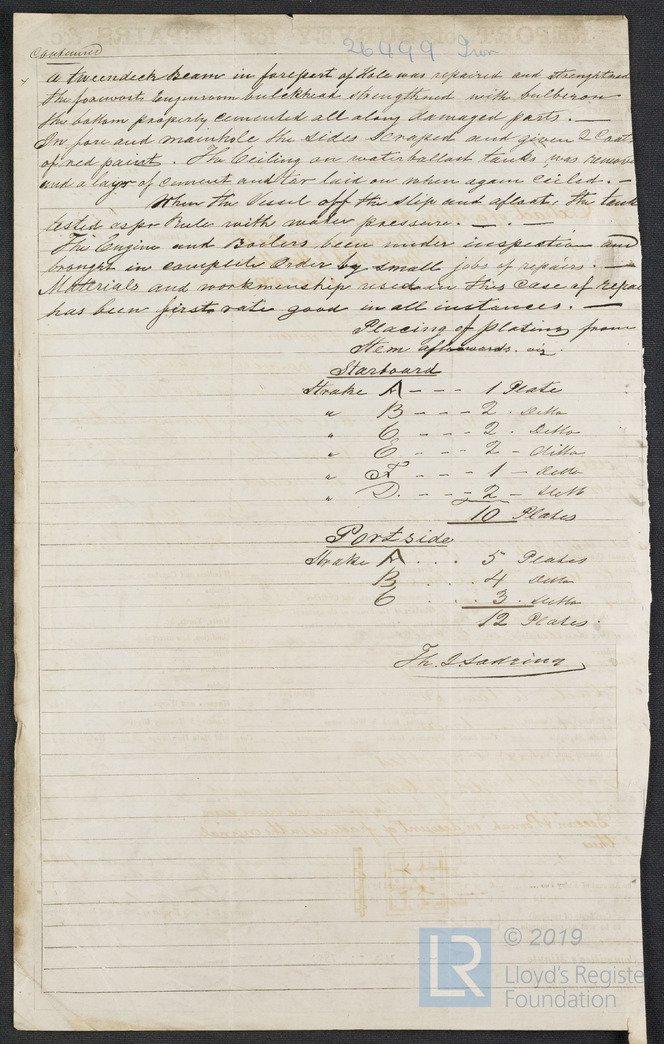 REPORT of SURVEY for REPAIRS &c
Continued
26499 Iron
A tweendeck Beam in forepert of Hole was repaired and strengthened
the foreworts Engineroom bulckhead strengthned with bulberon
the bottom properly cemented all along damaged parts. —
In fore and mainhole the sides scraped and given 2 Coats
of red paint. The Ceiling on waterballast tanks was removed
and a layer of cement and tar laid on when again ceiled. —
When the Vessel off the slip and afloat, the tank
tested as pr Rule with water pressure. — —
The Engine and Boilers been under inspection and
brought in complete Order by small jobs of repairs. —
Materials and workmenship used in this case of repair
has been first rate good in all instances. —
Placing of plating from
Stem afterwards. viz.
Starboard
Strake A - - - 1 Plate
" B - - - 2 . Ditto
" C - - - 2 . Ditto
" E - - - 2 - ditto
" F - - - 1 - ditto
" D. - - - 2 - ditto
10 Plates
Port side
Strake A . . . 5 Plates
B . . . 4 ditto
C . . . 3 . ditto
12 Plates.
LR
© 2019
Lloyd's Registe
Foundation